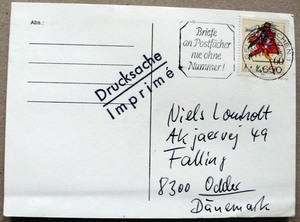 Abs.:
Briefe
an Postfächer
nie ohne
Nummer!
4690
Drucksache
Imprimé
Niels Lomholt
Akjaervej 49
Falling
8300 Odder
Dänemark